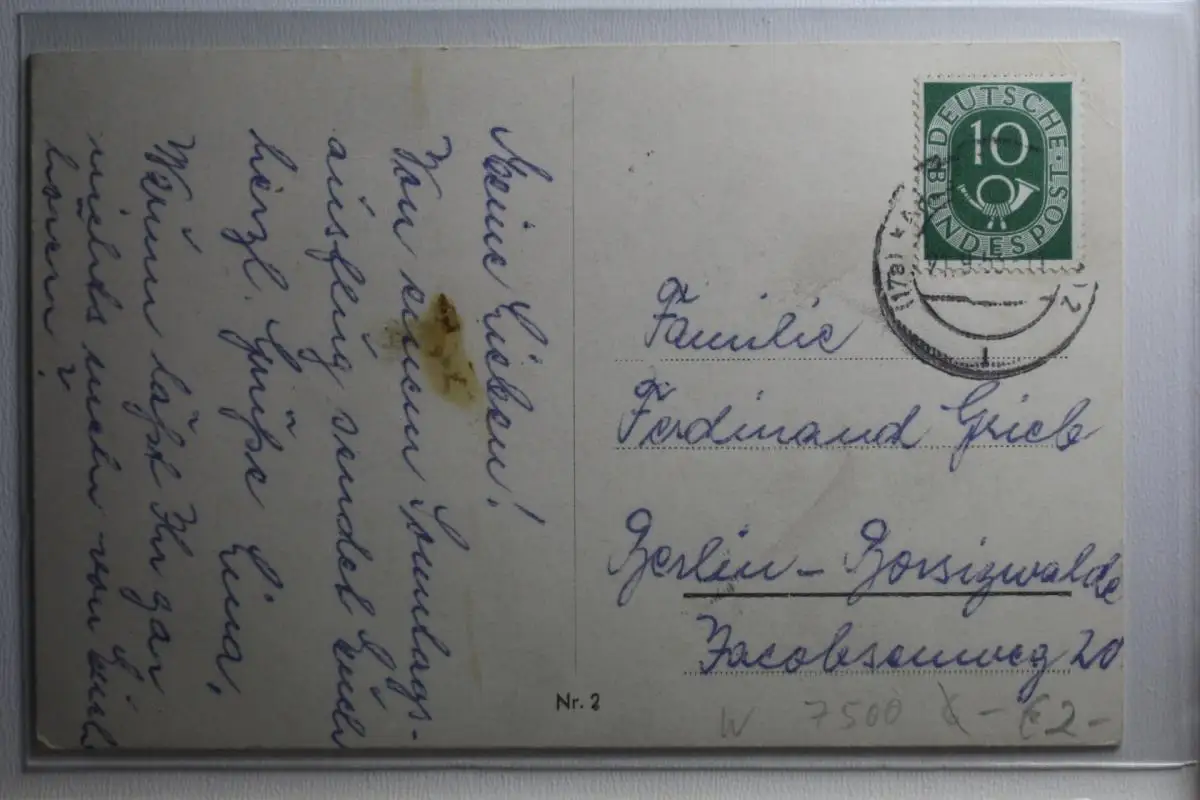 Meine Lieben!
Von einem Sonntags-
ausflug sendet Euch
herzl. Grüße Lina,
Warum laßt Ihr gar
nichts mehr von Euch
hören?
DEUTSCHE
BUNDESPOST
10
(17a)
Familie
Ferdinand Grieb
Berlin – Borsigwalde
Jacobsenweg 20
Nr. 2
W 7500 € 2-